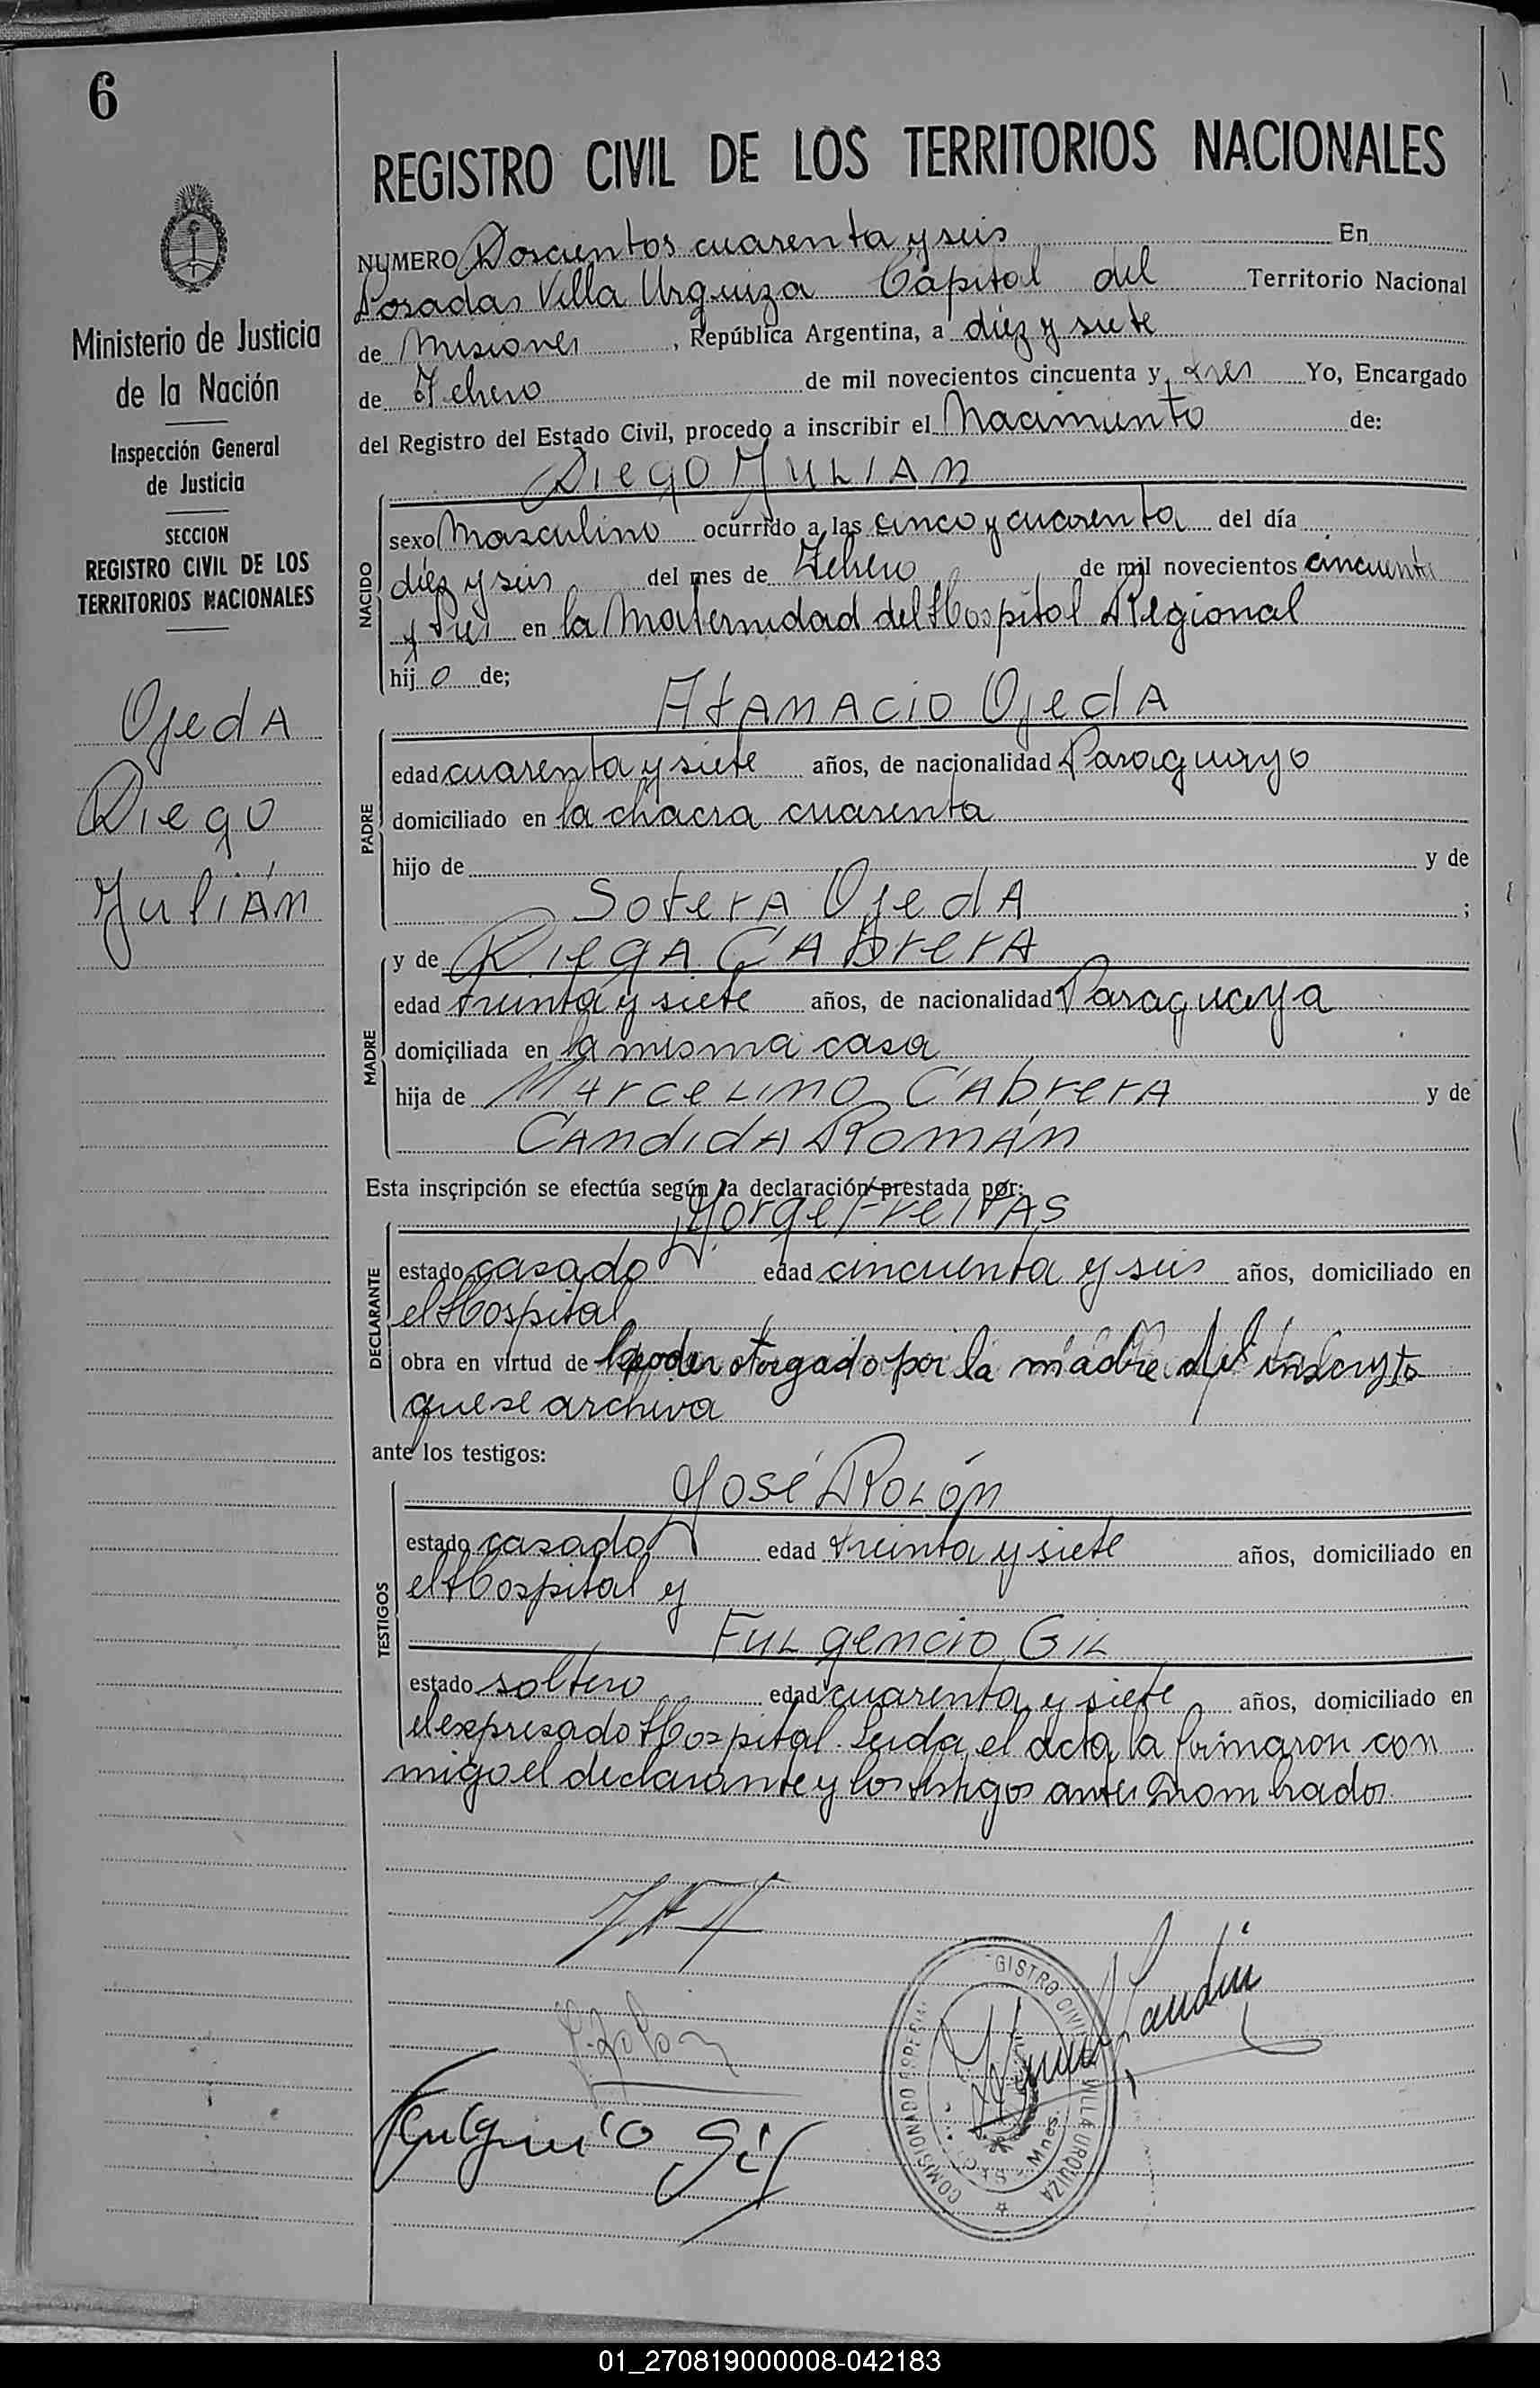 6
REGISTRO CIVIL DE LOS TERRITORIOS NACIONALES
Ministerio de Justicia
de la Nación
Inspección General
de Justicia
SECCION
REGISTRO CIVIL DE LOS
TERRITORIOS NACIONALES
Ojeda
Diego
Julián
NUMERO Doscientos cuarenta y seis En
Posadas Villa Urquiza Capital del Territorio Nacional
de Misiones, República Argentina, a diez y siete
de Febrero de mil novecientos cincuenta y tres Yo, Encargado
del Registro del Estado Civil, procedo a inscribir el Nacimiento de:
Diego Julian
NACIDO
sexo Masculino ocurrido a las cinco y cuarenta del día
diez y seis del mes de Febrero de mil novecientos cincuenta
y tres en la Maternidad del Hospital Regional
hijo de;
Atanacio Ojeda
PADRE
edad cuarenta y siete años, de nacionalidad Paraguayo
domiciliado en la chacra cuarenta
hijo de y de
Sotera Ojeda ;
MADRE
y de Diega Cabrera
edad treinta y siete años, de nacionalidad Paraguaya
domiciliada en la misma casa
hija de Marcelino Cabrera y de
Candida Román
Esta inscripción se efectúa según la declaración prestada por:
Jorge Freitas
DECLARANTE
estado casado edad cincuenta y seis años, domiciliado en
el Hospital
obra en virtud de poder otorgado por la madre del inscripto
que se archiva
ante los testigos:
José Rolón
TESTIGOS
estado casado edad treinta y siete años, domiciliado en
el Hospital y
Fulgencio Gil
estado soltero edad cuarenta y siete años, domiciliado en
el expresado Hospital. Leida el acta la firmaron con
migo el declarante y los testigos antes nombrados.
J. Rolon
Fulgencio Gil
GISTRO CIVIL VILLA URQUIZA
COMISIONADO ESPECIAL
Mnes.
01_270819000008-042183